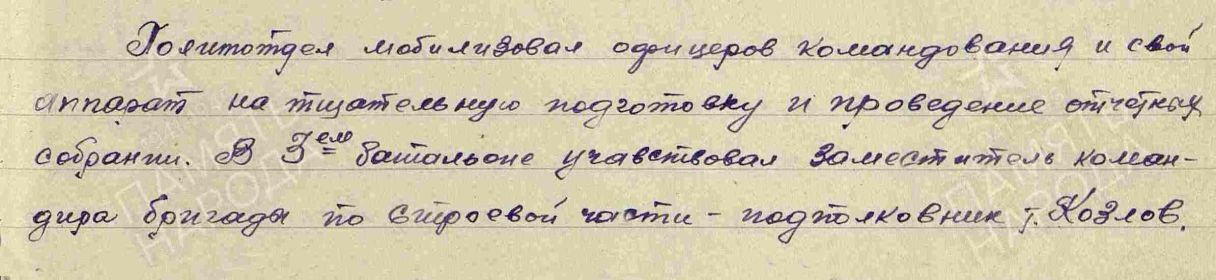 Политотдел мобилизовал офицеров командования и свой
аппарат на тщательную подготовку и проведение отчетных
собрании. В 3ем батальоне учавствовал заместитель коман-
дира бригады по строевой части - подполковник т. Козлов.